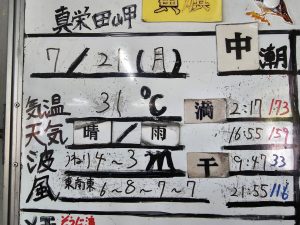 真栄田岬
中潮
7/21(月)
気温 31℃ 満 2:17 173
天気 晴/雨 16:55 159
波 うねり4~3m 干 9:47 33
風 東南東 6~8~7~7 21:55 116